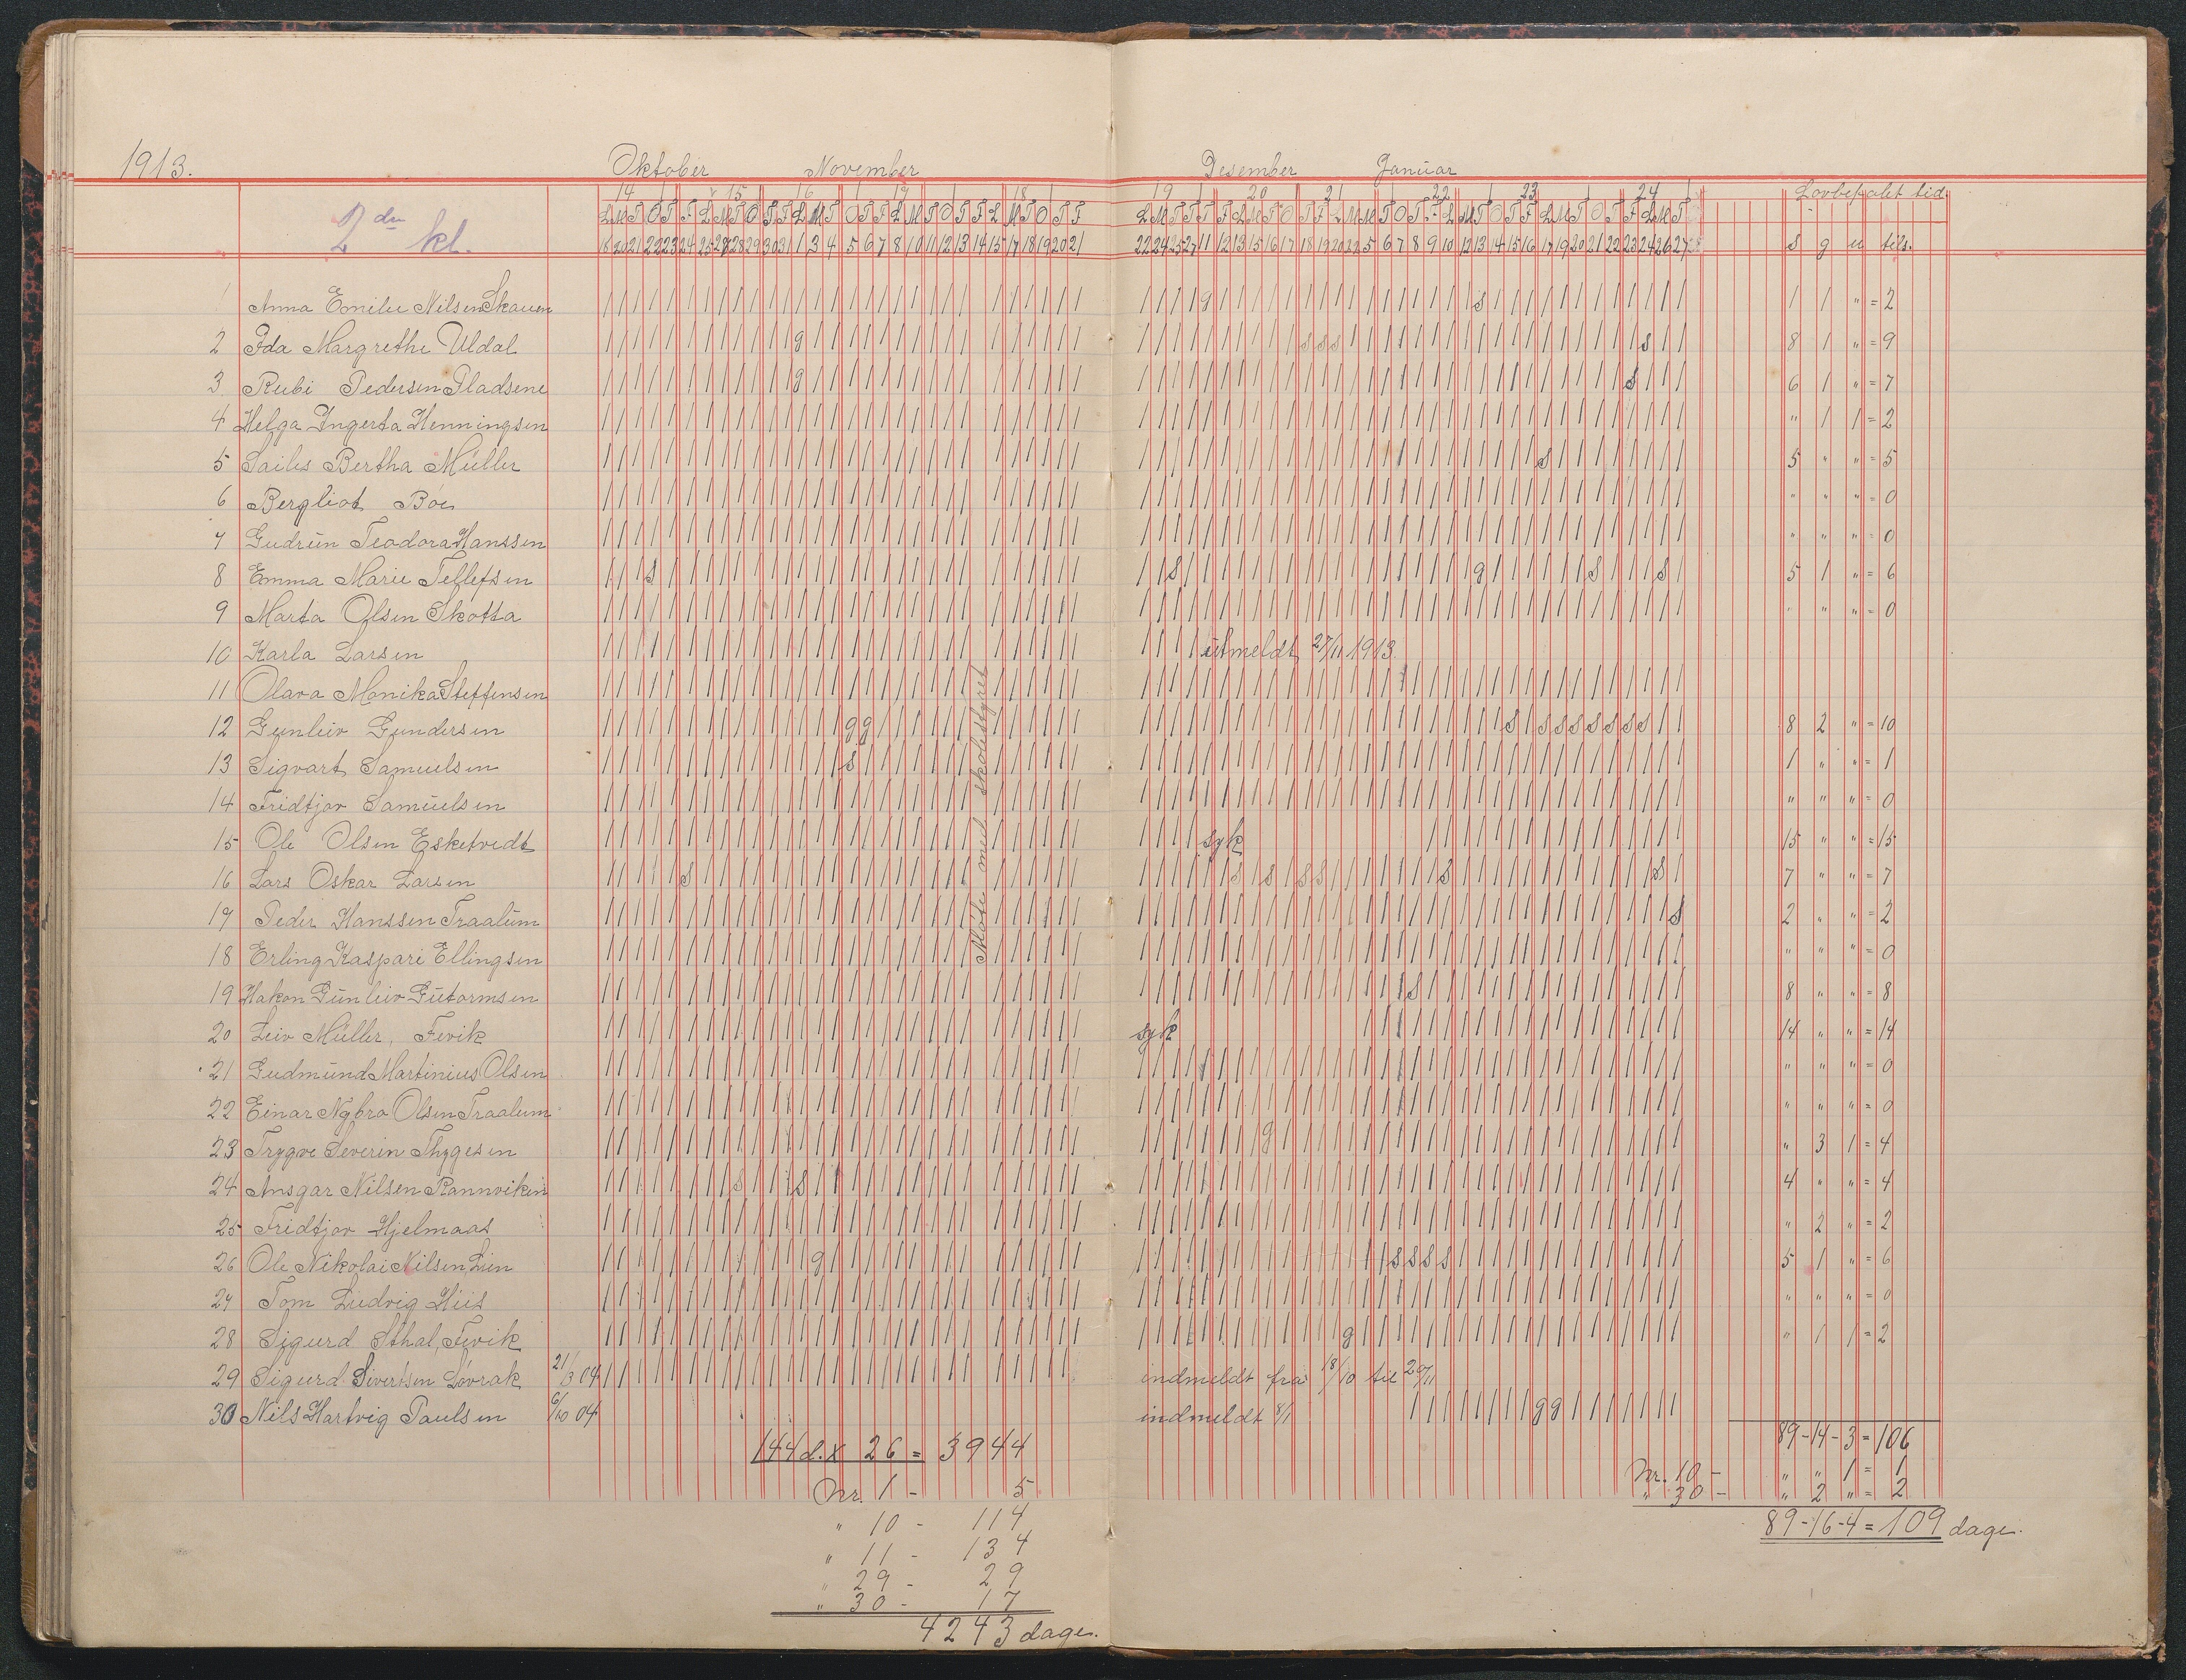 1913.
Oktober November Desember Januar
14 15 16 17 18 19 20 21 22 23 24 Lovbefalet tid.
2den kl.
s g u tils.
1 Anna Emilie Nilsen Skauen 1 1 " = 2
2 Ida Margrethe Uldal 8 1 " = 9
3 Rubi Pedersen Pladsene 6 1 " = 7
4 Helga Ingerta Henningsen " 1 1 = 2
5 Bertha Müller 5 " " = 5
6 Bergliot Boe " " " = 0
7 Gudrun Teodora Hanssen " " " = 0
8 Emma Marie Tellefsen 5 1 " = 6
9 Marta Olsen Skotta " " " = 0
10 Karla Larsen utmeldt 27/11 1913
11 Olava Monika Steffensen
12 Gunleiv Gundersen 8 2 " = 10
13 Sigvart Samuelsen 1 " " = 1
14 Fridtjov Samuelsen " " " = 0
15 Ole Olsen Esketvedt syk 15 " " = 15
16 Lars Oskar Larsen 7 " " = 7
17 Peder Hanssen Traalum 2 " " = 2
18 Erling Kaspari Ellingsen " " " = 0
19 Hakon Gunleiv Gutormsen 8 " " = 8
20 Leiv Müller, Fevik syk 14 " " = 14
21 Gudmund Martinius Olsen " " " = 0
22 Einar Nybro Olsen Traalum " " " = 0
23 Trygve Severin Thygesen " 3 1 = 4
24 Ansgar Nilsen Rannviken 4 " " = 4
25 Fridtjov Hjelmaas " 2 " = 2
26 Ole Nikolai Nilsen Lien 5 1 " = 6
27 Tom Ludvig Hiis " " " = 0
28 Sigurd Sthal, Fevik " 1 1 = 2
29 Sigurd Sivertsen Lovrak 21/3 04 indmeldt fra 18/10 til 20/11
30 Nils Hartvig Paulsen 6/10 04 indmeldt 8/1
Møte med skolestyret
144 d. x 26 = 3944
Nr. 1 - 5
" 10 - 114
" 11 - 134
" 29 - 29
" 30 - 17
4243 dage.
89-14-3 = 106
Nr. 10 - " " 1 = 1
" 30 - " 2 " = 2
89-16-4 = 109 dage.